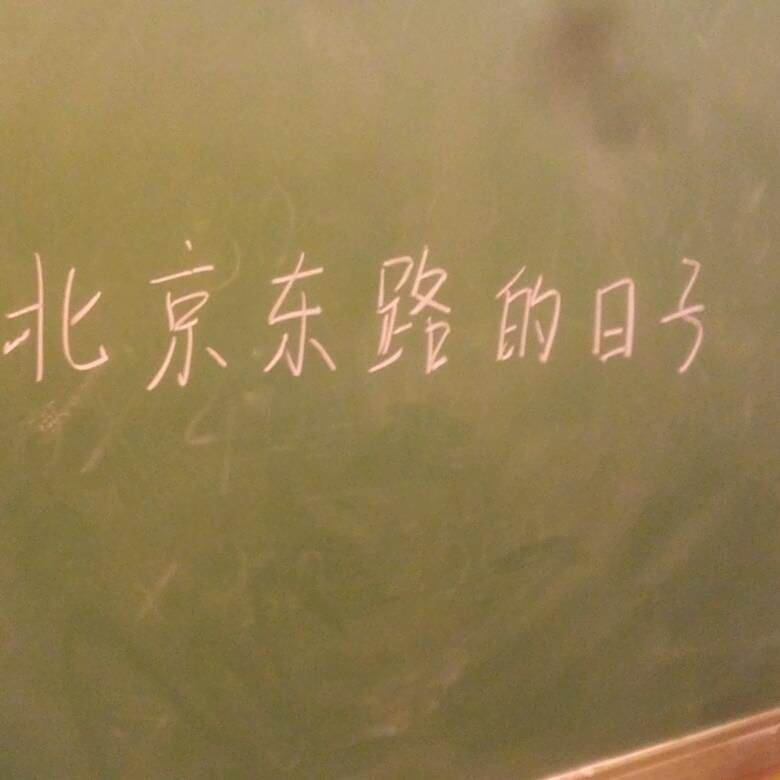 北京东路的日子